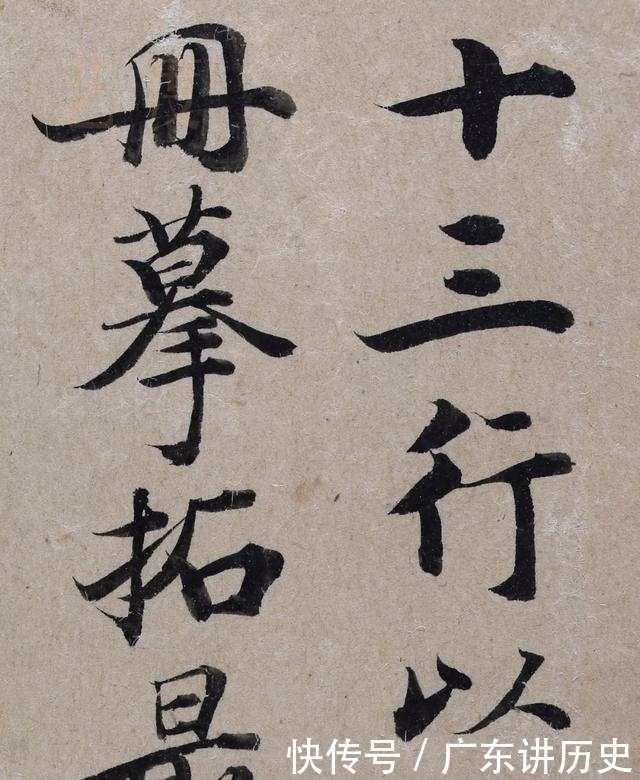 十三行以
冊摹拓最
快传号/广东讲历史